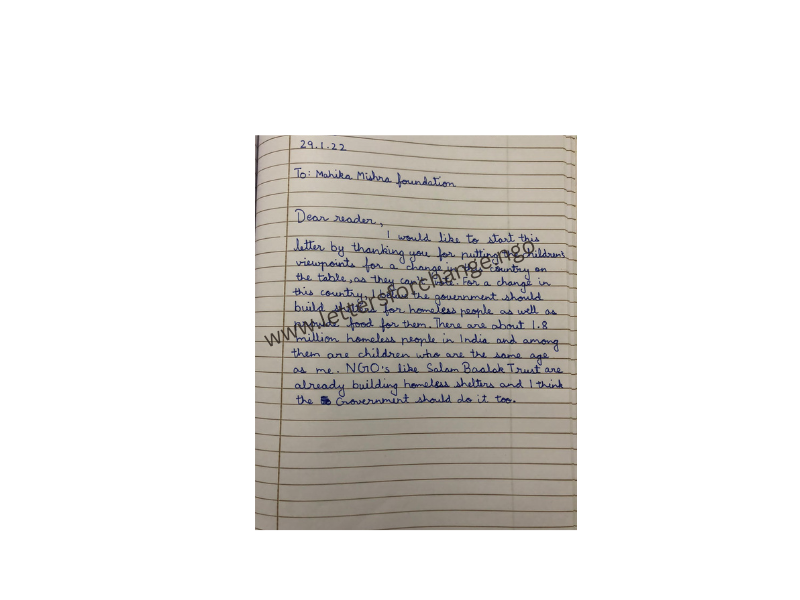 29.1.22
To: Mahika Mishra foundation
Dear reader,
I would like to start this
letter by thanking you for putting children's
viewpoints for a change in the country on
the table, as they can't vote. For a change in
this country, I the government should
build shelters for homeless people as well as
provide food for them. There are about 1.8
million homeless people in India and among
them are children who are the same age
as me. NGO's like Salam Baalak Trust are
already building homeless shelters and I think
the Government should do it too.
www.lettersforchange.ngo